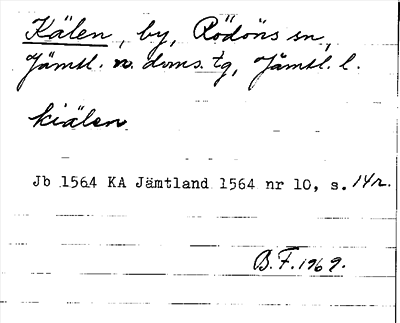 Kälen, by, Rödöns sn,
Jämtl. v. doms. tg, Jämtl. l.
kiälen
Jb 1564 KA Jämtland 1564 nr 10, s. 14r.
B.F. 1969.